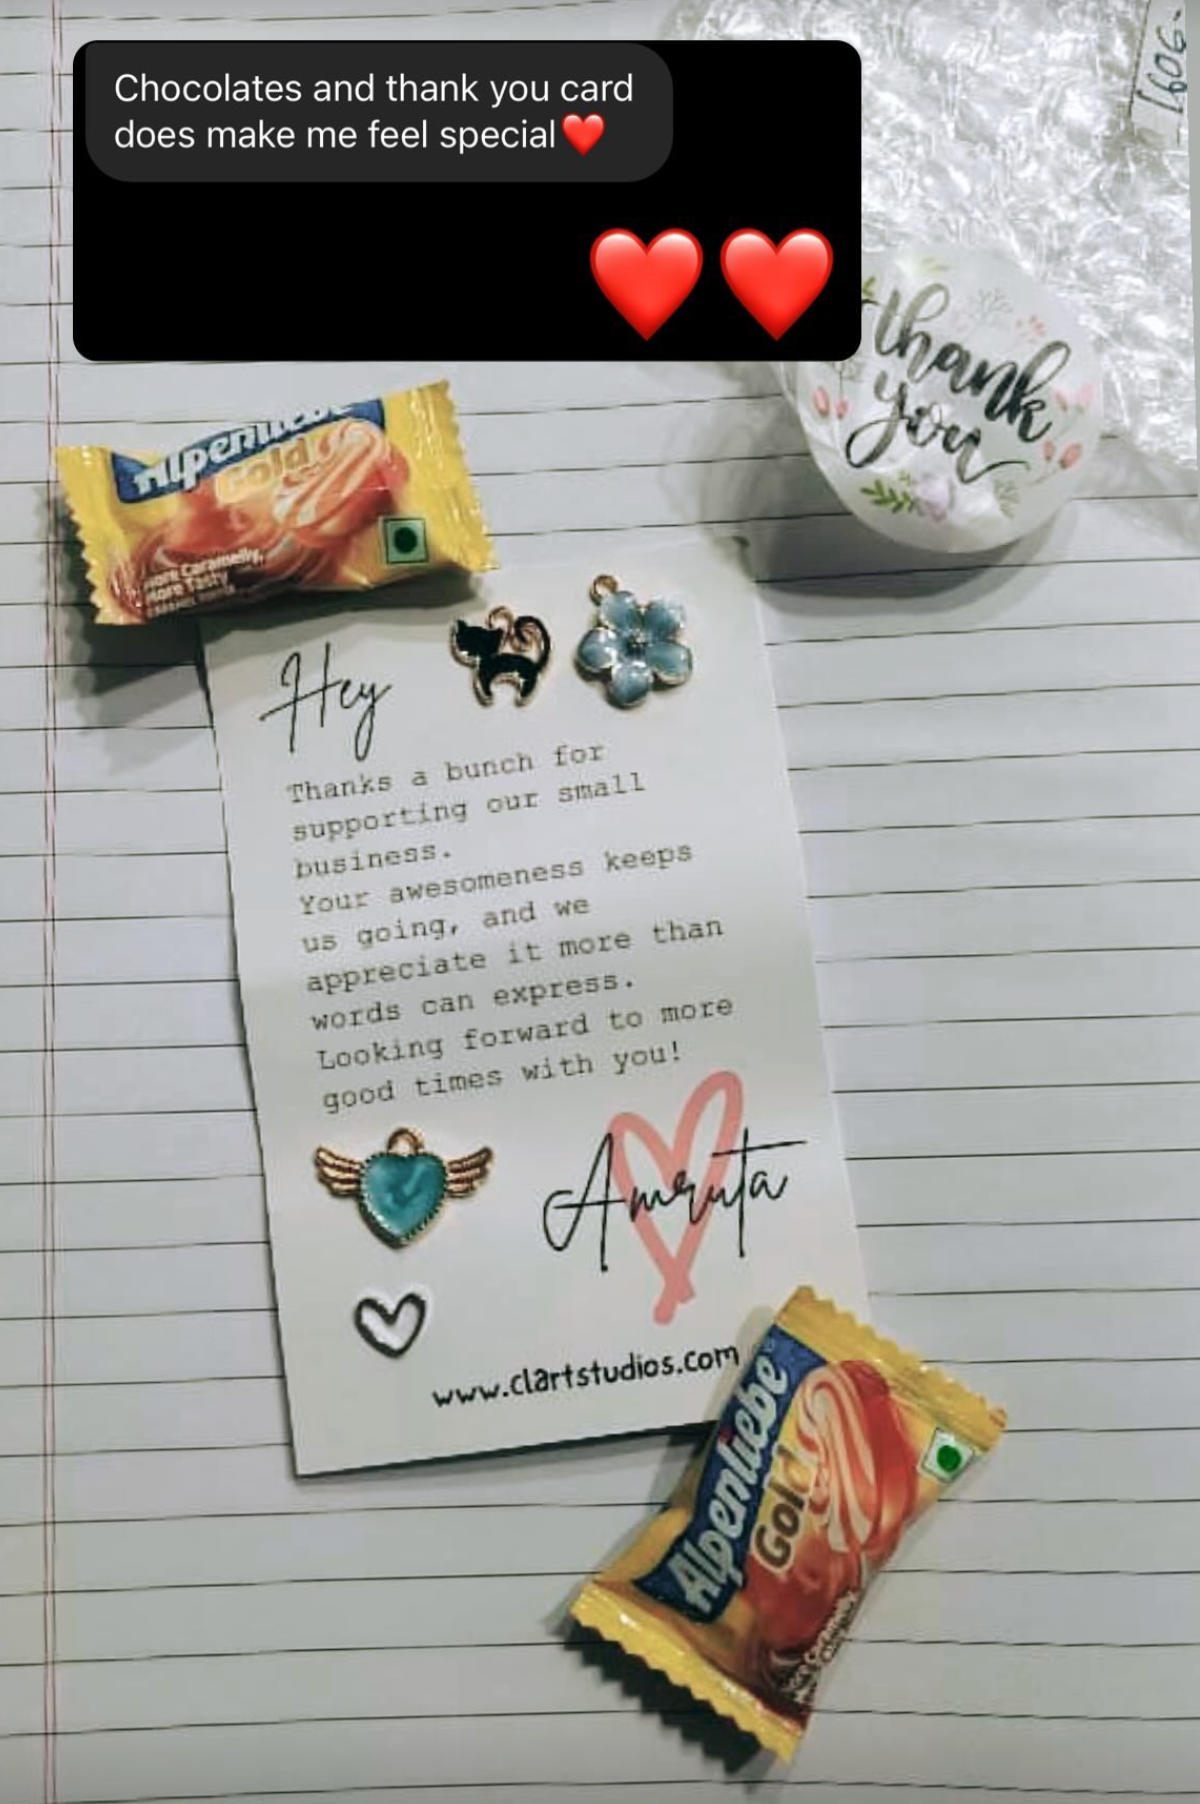 Chocolates and thank you card
does make me feel special❤️
❤️❤️
-1606-
thank
you
Alpenliebe
Gold
More Caramelly,
More Tasty
Hey
Thanks a bunch for
supporting our small
business.
Your awesomeness keeps
us going, and we
appreciate it more than
words can express.
Looking forward to more
good times with you!
Amruta
www.clartstudios.com
Alpenliebe
Gold
More Caramelly